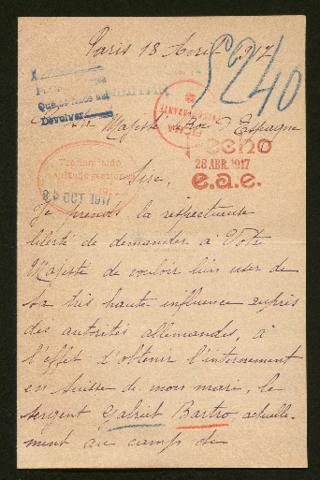 Paris 18 Avril 1917
5240
Que
Devolver
Sa Majesté le Roi d'Espagne
fecho
28 ABR. 1917
e.a.e.
Transmitido
OCT 1917
Sire,
Je prends la respectueuse
liberté de demander à Votre
Majesté de vouloir bien user de
sa très haute influence auprès
des autorités allemandes, à
l'effet d'obtenir l'internement
en Suisse de mon mari, le
sergent Gabriel Bartro actuelle-
ment au camp de